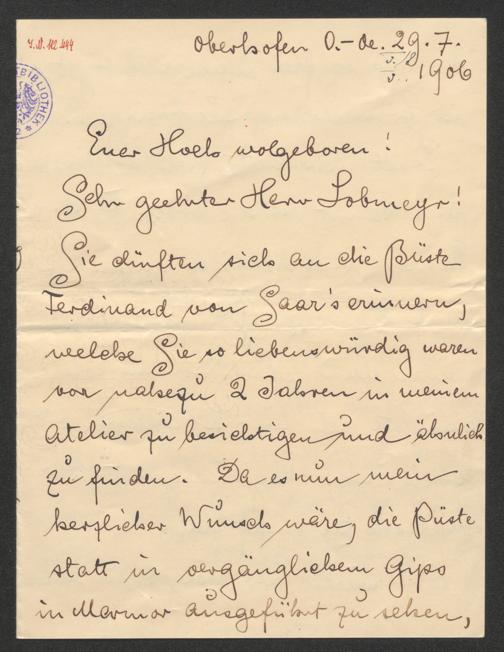 I.N. 112.494
Oberhofen O.-Oe. 29. 7.
1906
BIBLIOTHEK
Euer Hoch wolgeboren!
Sehr geehrter Herr Lobmeyr!
Sie dürften sich an die Büste
Ferdinand von Saar's erinnern,
welche Sie so liebenswürdig waren
vor nahezu 2 Jahren in meinem
Atelier zu besichtigen und ähnlich
zu finden. Da es nun mein
herzlicher Wunsch wäre, die Büste
statt in vergänglichem Gips
in Marmor ausgeführt zu sehen,